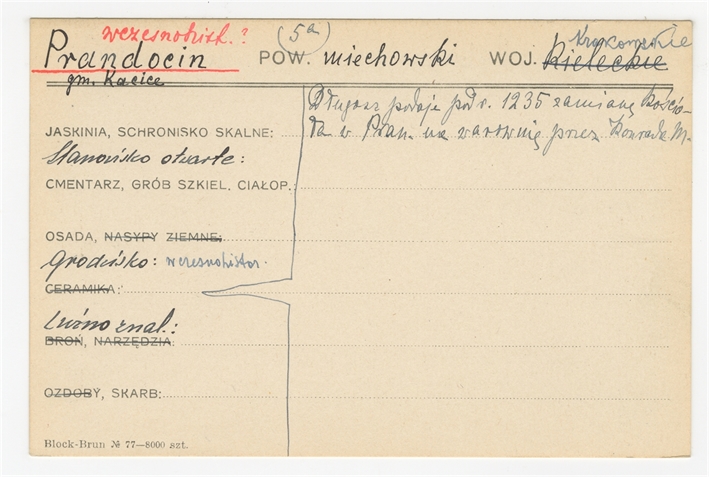 wczesnohist.? (5a) Krakowskie
Prandocin POW. miechowski WOJ. Kieleckie
gm. Kacice
Długosz podaje pod r. 1235 zamianę kościo-
JASKINIA, SCHRONISKO SKALNE: ła w Pran. na warownię przez Konrada M.
Stanowisko otwarte:
CMENTARZ, GRÓB SZKIEL. CIAŁOP.:
OSADA, NASYPY ZIEMNE:
Grodzisko: wczesnohistor.
CERAMIKA:
Luźno znal.:
BROŃ, NARZĘDZIA:
OZDOBY, SKARB:
Block-Brun № 77—8000 szt.